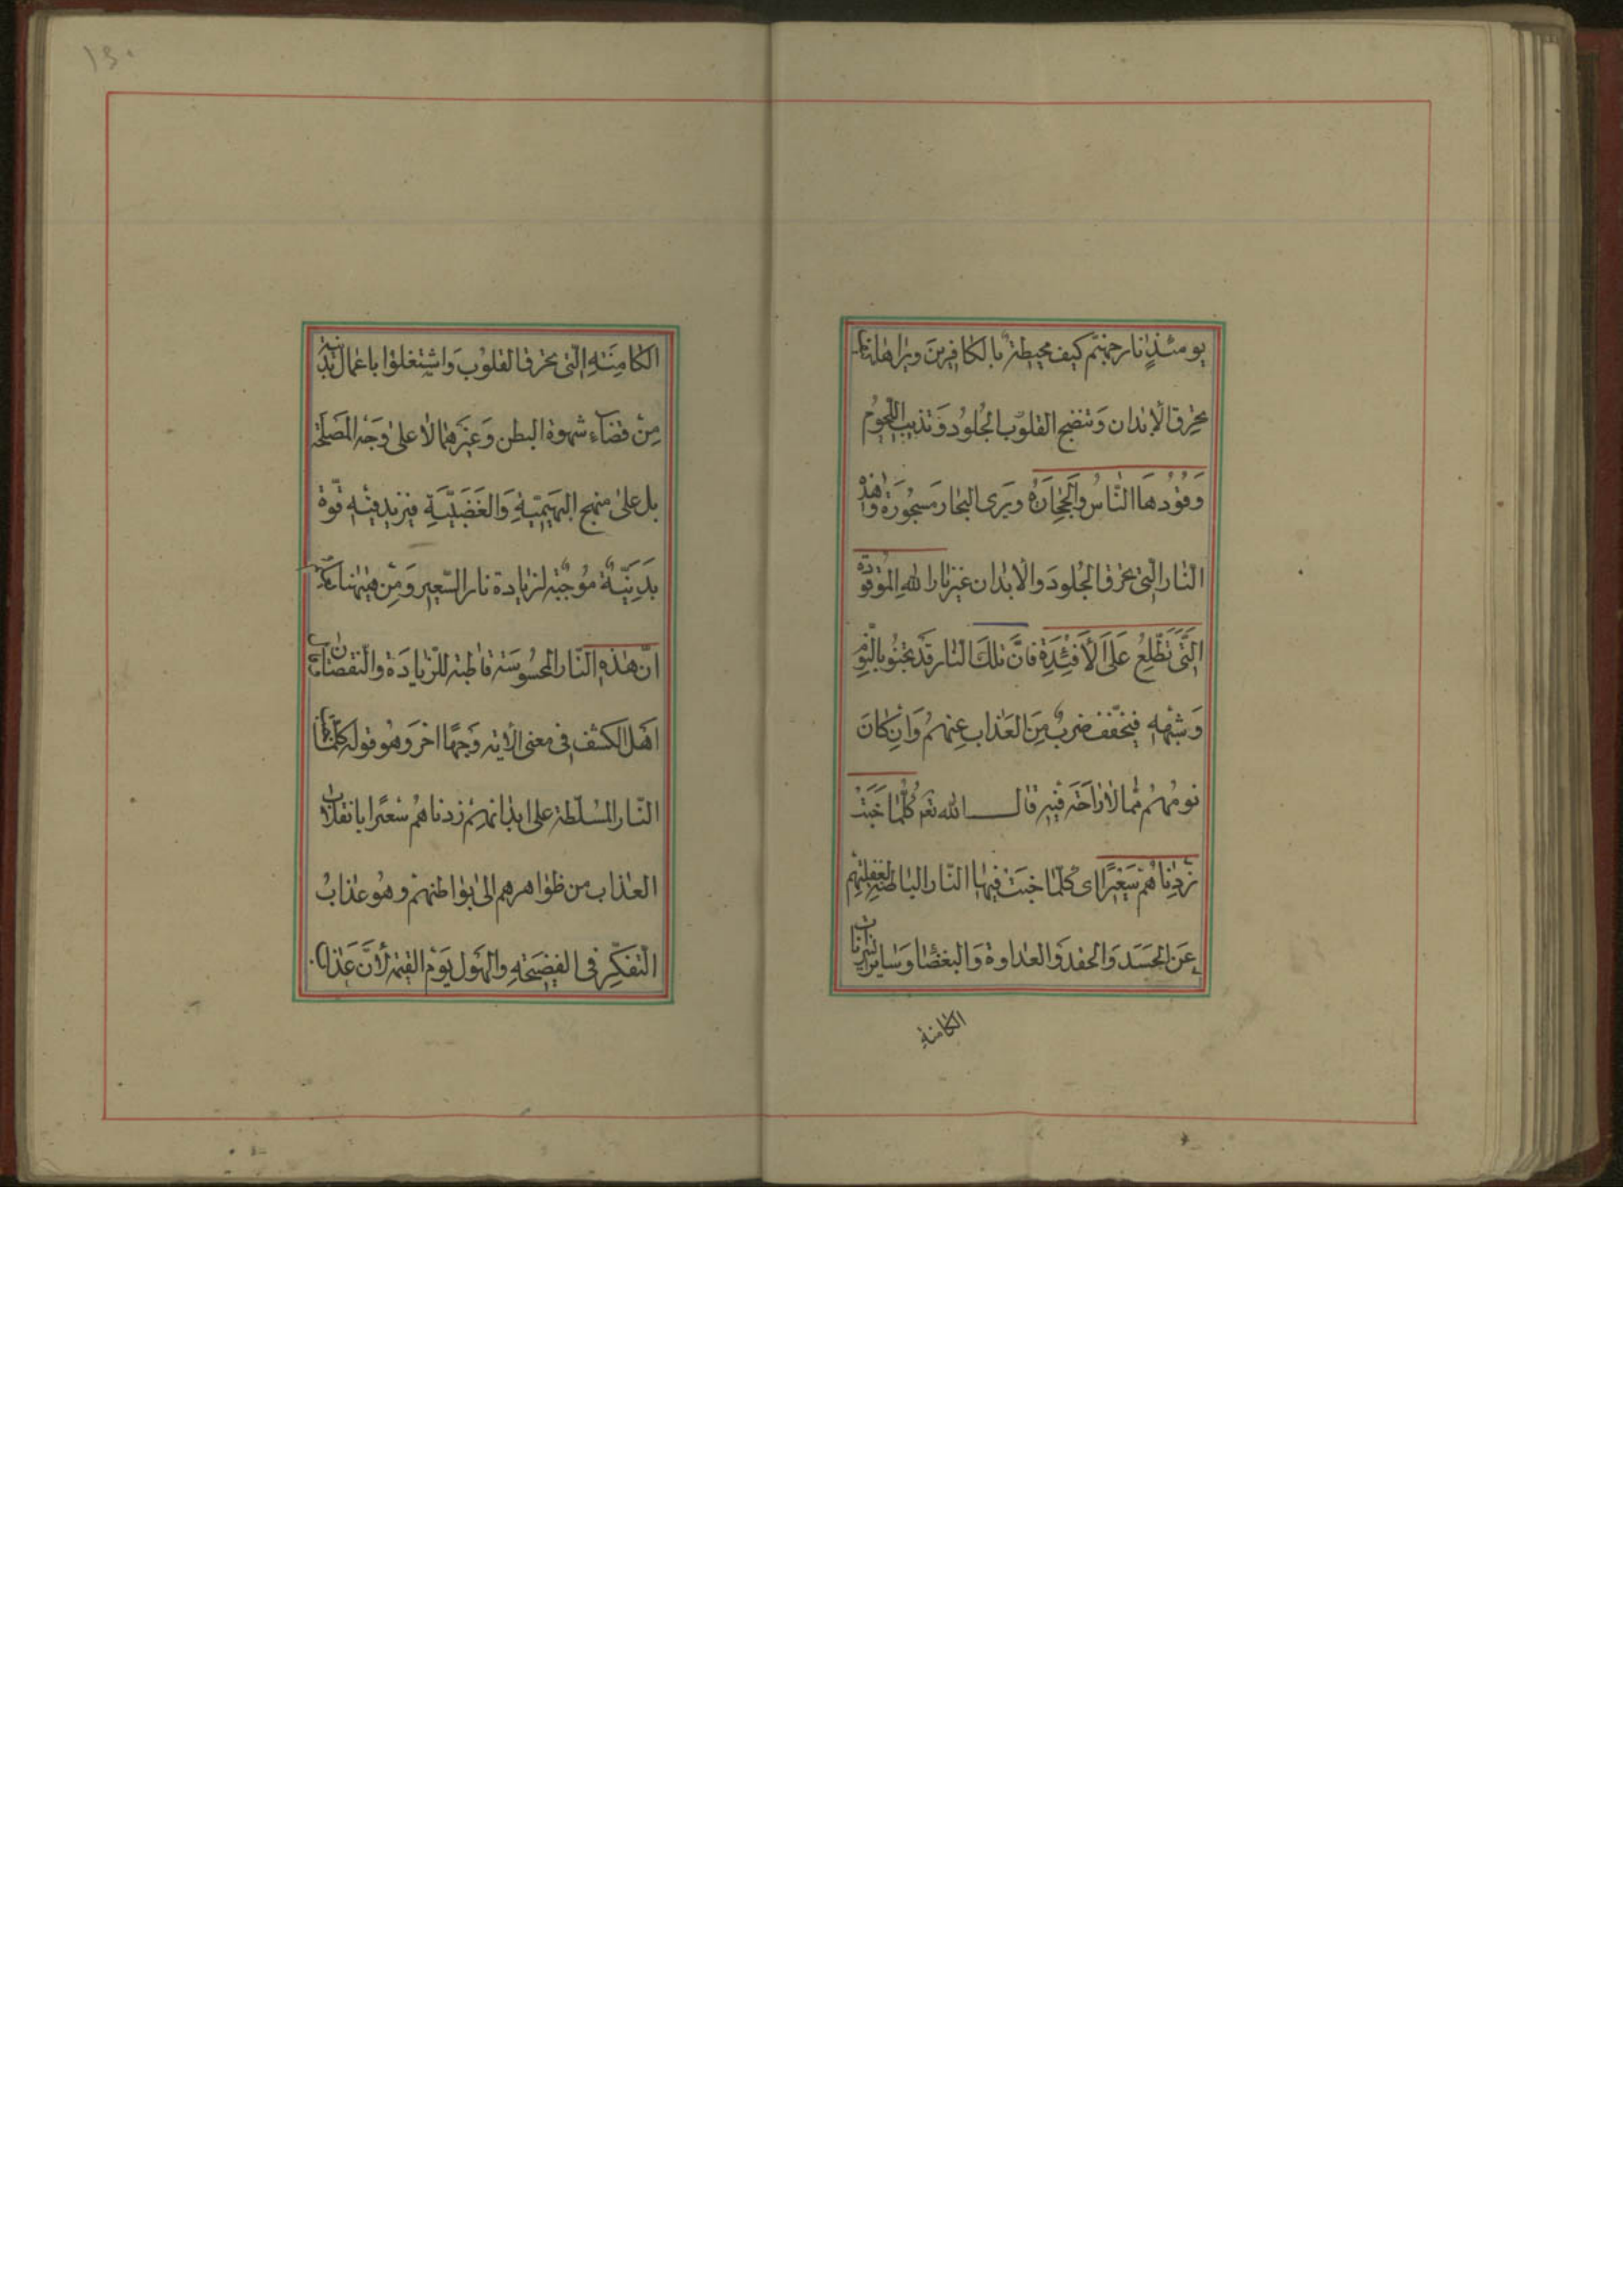 يومئذٍ نار جهنم كيف محيطةٌ بالكافرين ويراها
محرق الأبدان وتنضج القلوب الجُلُود وَتذيب اللّحُوم
وَقُودُهَا النَّاسُ وَالْحِجَارَةُ وَيَرى البحار مَسجُورَة وَهٰذِه
النار الّتي تحرق الجُلود والابدان غير نار اللهِ المُوقَدَة
الَّتِي تَطَّلِعُ عَلَى الْأَفْئِدَةِ فانَّ تلكَ النار قد تخبُو بالنّوم
وَشبهِهِ فيخفّف ضربٌ مِنَ العَذاب عنهم وَانِ كانَ
نومُهُم ممّا لا راحَة فيهِ قال الله تعم كُلَّمَا خَبَتْ
زِدْنَاهُمْ سَعِيرًا اى كلّما خبَت فيها النّار الباطنة لغفلتِهِم
عَن الحسَد وَالحقد وَالعداوة وَالبغضَا وَسَاير النيرَان
الكامنةِ
١٣٠
الكامِنَةِ الّتى تحرق القلوُبَ وَاشتغلوا باعمال بَدنية
مِن قضاء شهوة البطن وَغيرهَا لا على وَجْه المَصلحَة
بل على منهج البهيميّةِ وَالغَضَبيّةِ فيزيد فيهِ قوّة
بدَنيّةٌ مُوجبَة لزيادة نار السّعير وَمِن هيهُنا
انّ هٰذهِ النّار المحسُوسَة قابلة للزّيادَة والنّقصَان
اهَل الكشف فى معنى الأية وَجهًا اخرَ وَهُو قوله كلّمَا خبت
النّار المسُلّطة على ابدانهِم زدناهُم سَعيرًا بانقلاب
العذاب من ظوَاهرهم الى بوَاطنهم وَهُو عذابُ
التّفكّر فى الفضِيحَةِ والهَول يَوْم القيمة لأنَّ عَذاب